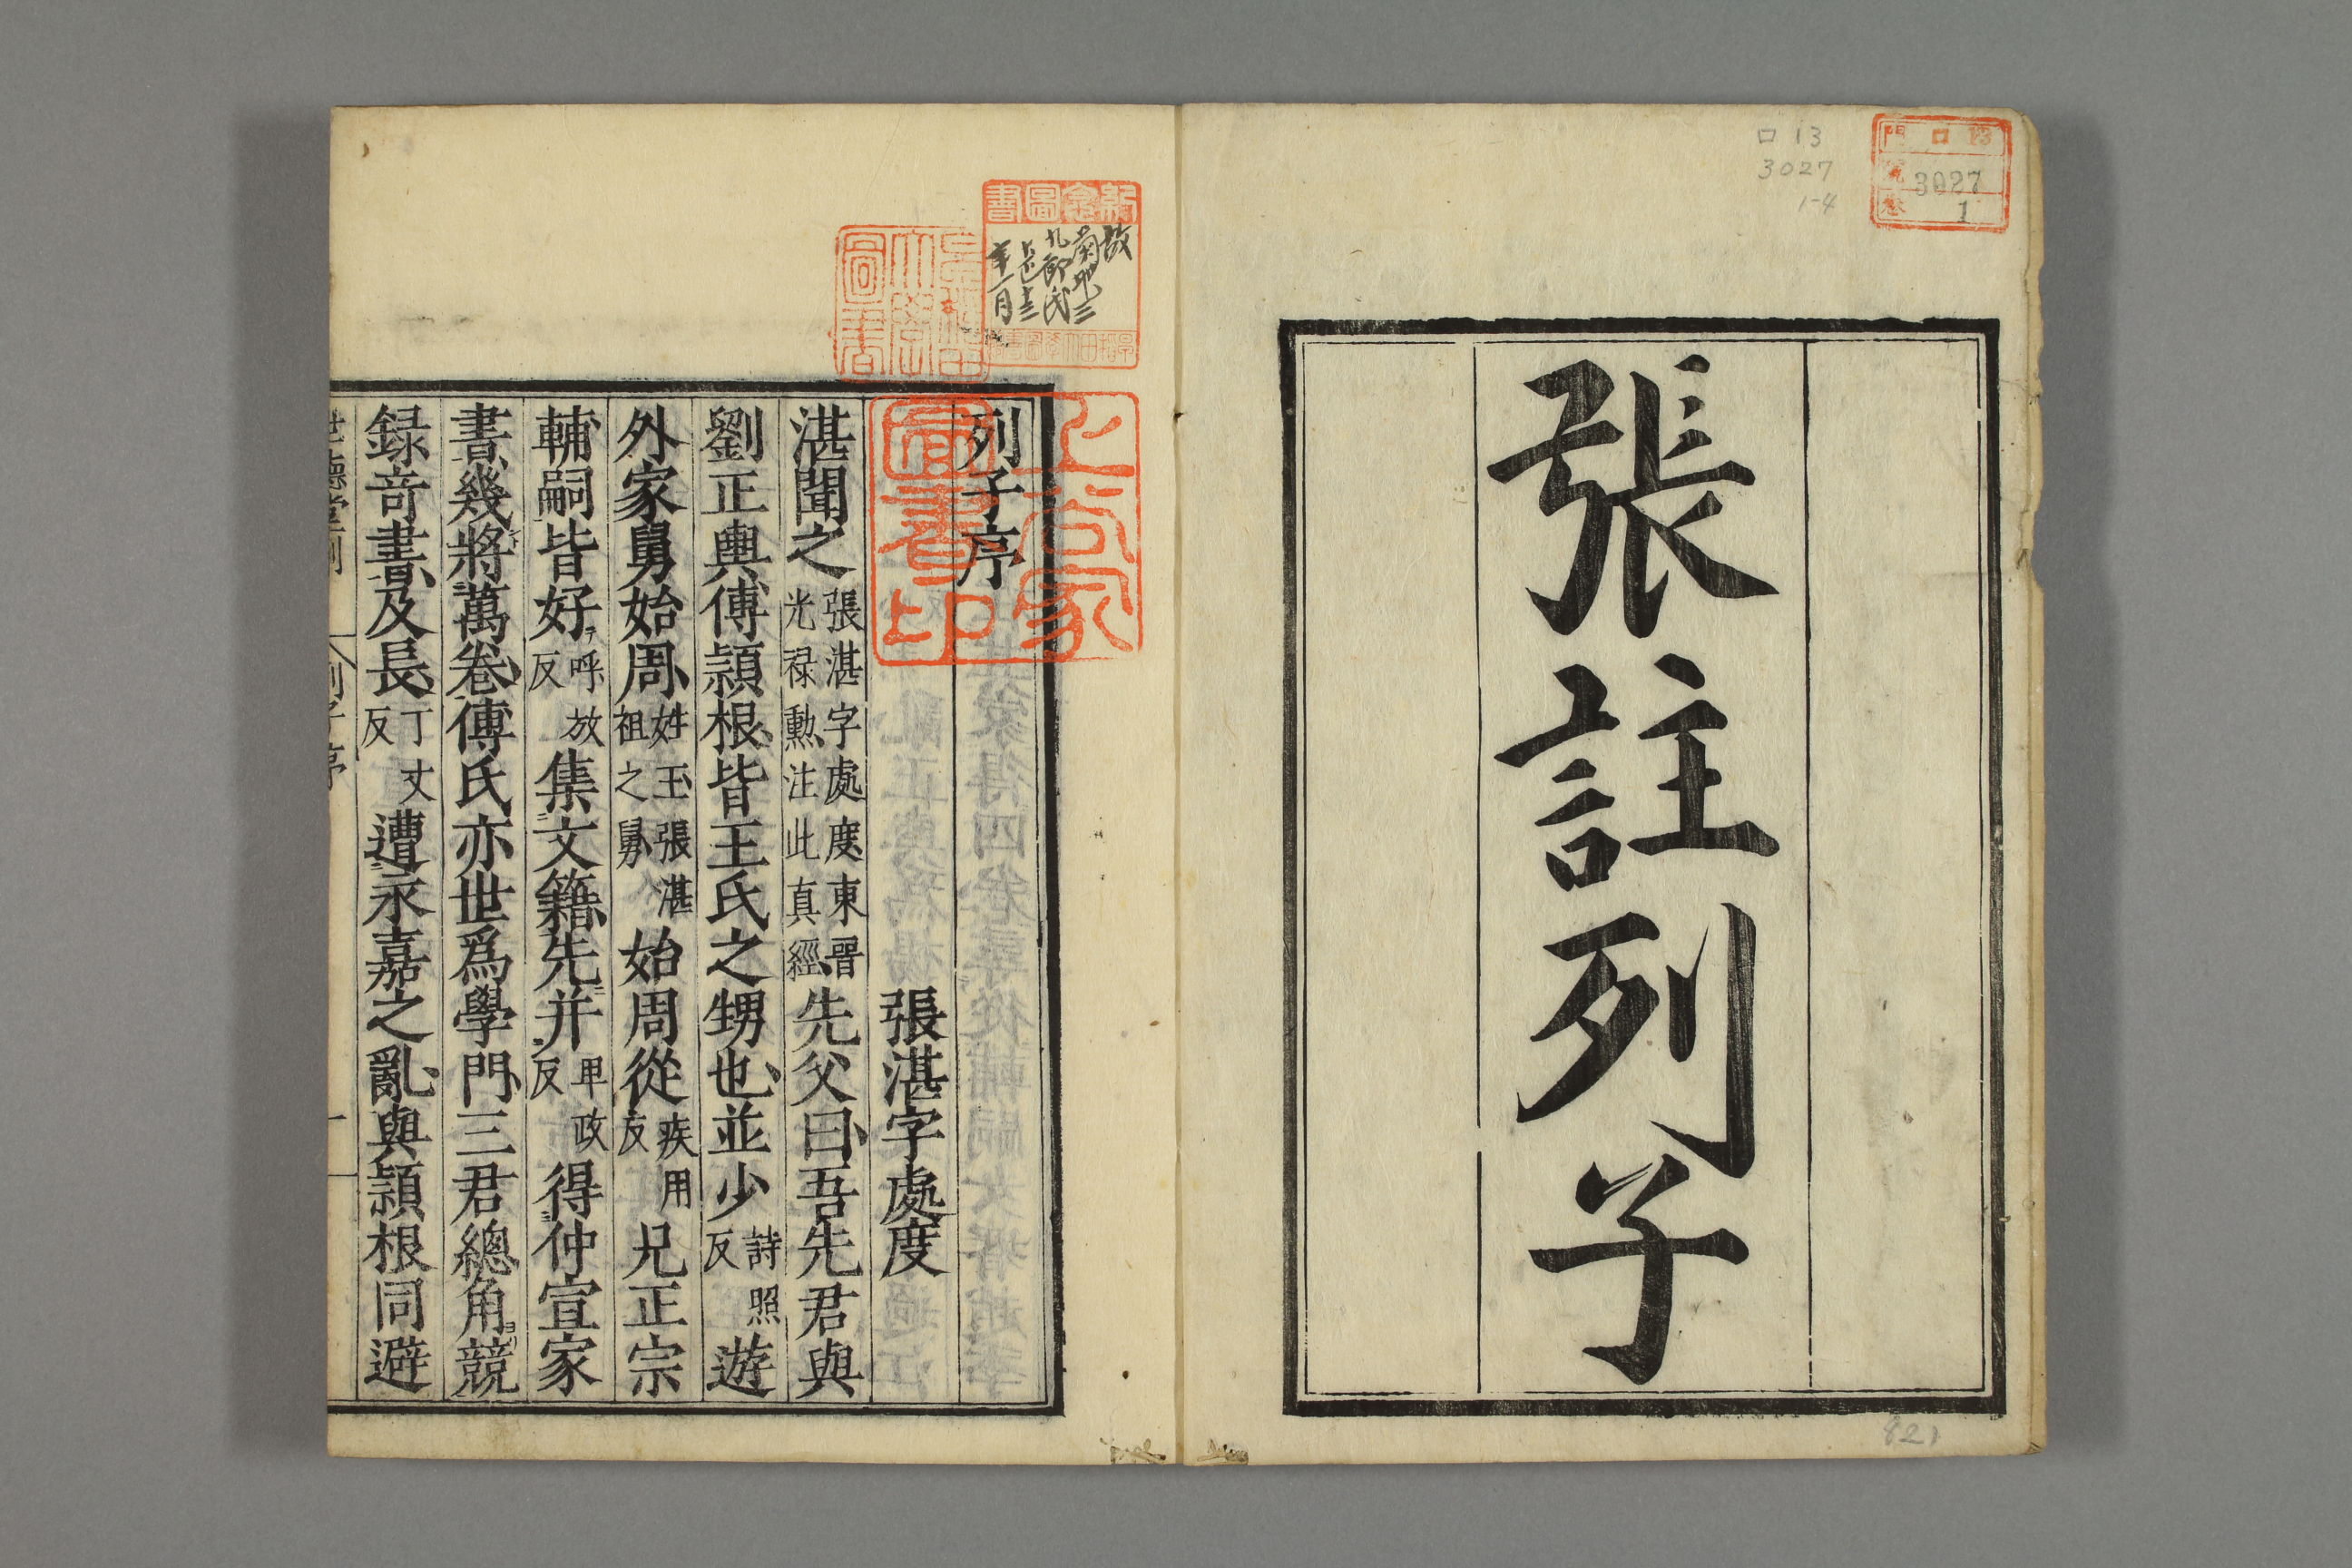 口 13
3027
1-4
門 口 13
號 3027
卷 1
張註列子
821
紀念圖書
故
菊地三
九郎氏
大正十三
年一月
早稲田大學圖書
上谷家
圖書印
列子序
張湛字處度
湛聞之張湛字處度東晉光禄勳注此真經先父曰吾先君與
劉正輿傅頴根皆王氏之甥也並少詩照反遊
外家舅始周姓王張湛祖之舅始周從疾用反兄正宗
輔嗣皆好呼放反集文籍先并畀政反得仲宣家
書幾將萬卷傅氏亦世爲學門三君總角競
録竒書及長丁丈反遭永嘉之亂與頴根同避
世德堂刊
列子序
一